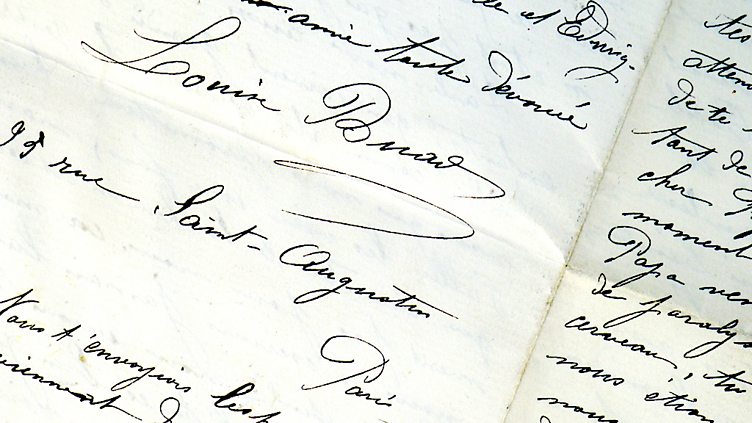 et Edmig-
amie toute dévouée
Louise
rue Saint-Augustin
Paris
Nous t'envoyons les
tes
atten
de te
tant de
cher
moment
Papa ven
de paralys
cerveau, tu
nous étion
nous